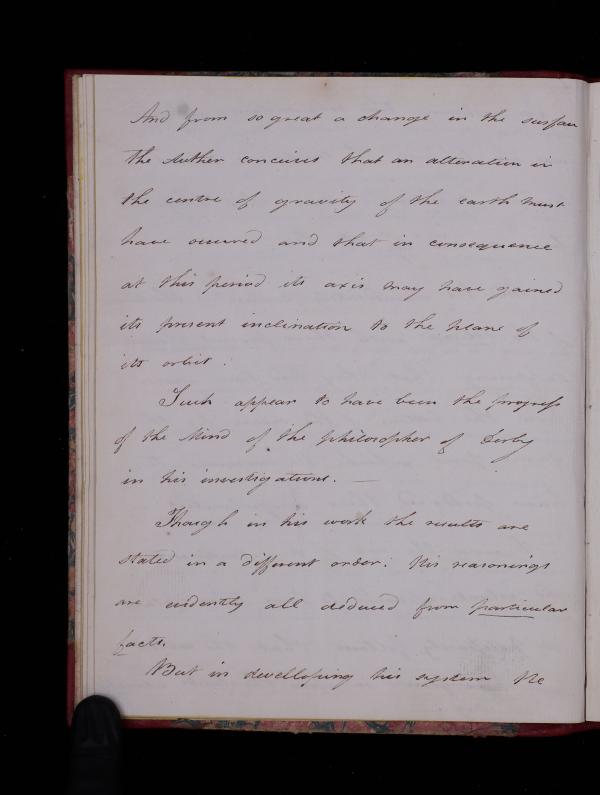 And from so great a change in the surface
the Author conceives that an alteration in
the centre of gravity of the earth must
have occured and that in consequence
at this period its axis may have gained
its present inclination to the plane of
its orbit.
Such appear to have been the progress
of the Mind of the philosopher of Derby
in his investigations. —
Though in his work the results are
stated in a different order. His reasonings
are evidently all deduced from particular
facts.
But in develloping his system He